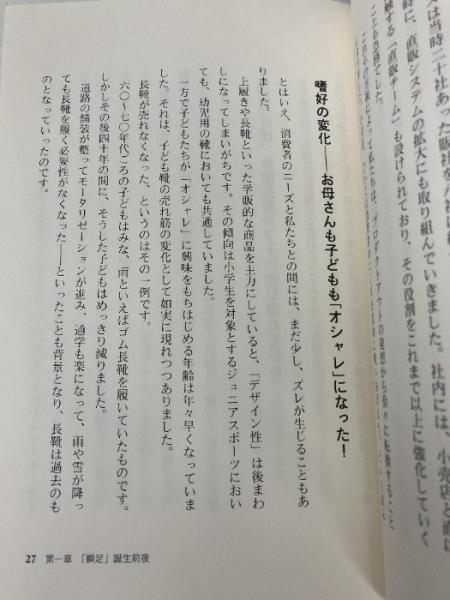 嗜好の変化――お母さんも子どもも「オシャレ」になった！
とはいえ、消費者のニーズと私たちとの間には、まだ少し、ズレが生じることもあ
りました。
上履きや長靴といった学販的な商品を主力にしていると、「デザイン性」は後まわ
しになってしまいがちです。その傾向は小学生を対象とするジュニアスポーツにおい
ても、幼児用の靴においても共通していました。
一方で子どもたちが「オシャレ」に興味をもちはじめる年齢は年々早くなっていま
した。それは、子ども靴の売れ筋の変化として如実に現れつつありました。
長靴が売れなくなった、というのはその一例です。
六〇～七〇年代ごろの子どもはみな、雨といえばゴム長靴を履いていたものです。
しかしその後四十年の間に、そうした子どもはめっきり減りました。
道路の舗装が整ってモータリゼーションが進み、通学も楽になって、「雨や雪が降っ
ても長靴を履く必要性がなくなった――といったことも背景となり、長靴は過去のも
のとなっていったのです。
27 第一章 「瞬足」誕生前夜